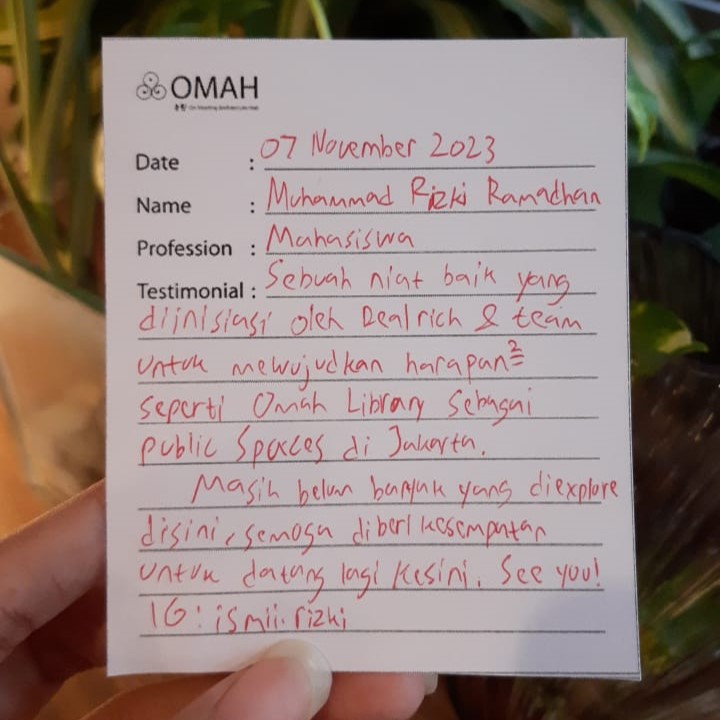 OMAH
Date : 07 November 2023
Name : Muhammad Rizki Ramadhan
Profession : Mahasiswa
Testimonial : Sebuah niat baik yang
diinisiasi oleh Dealrich & team
untuk mewujudkan harapan²
seperti Omah Library sebagai
public Spaces di Jakarta.
Masih belum banyak yang diexplore
disini, semoga diberi kesempatan
untuk datang lagi kesini. See you!
IG : ismii.rizki